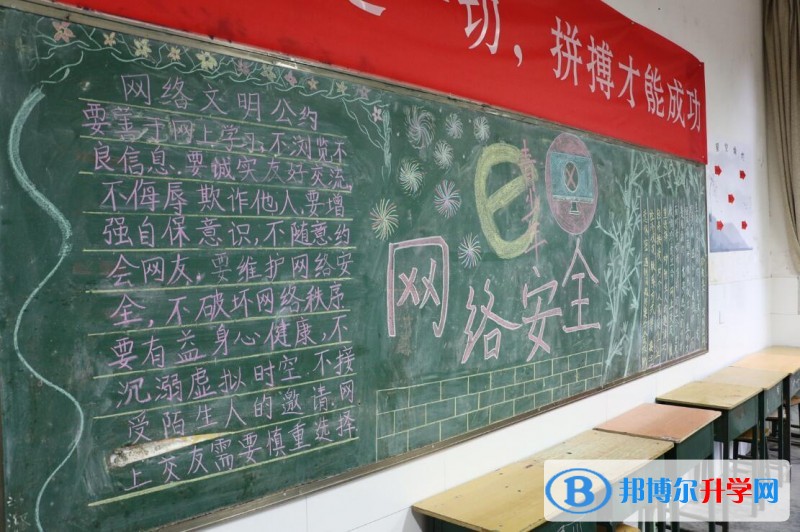 功，拼搏才能成功
网络文明公约
要善于网上学习,不浏览不
良信息.要诚实友好交流,
不侮辱欺诈他人.要增
强自保意识,不随意约
会网友.要维护网络安
全,不破坏网络秩序
要有益身心健康,不
沉溺虚拟时空.不接
受陌生人的邀请.网
上交友需要慎重选择
e
青少年
网络安全
邦博尔升学网